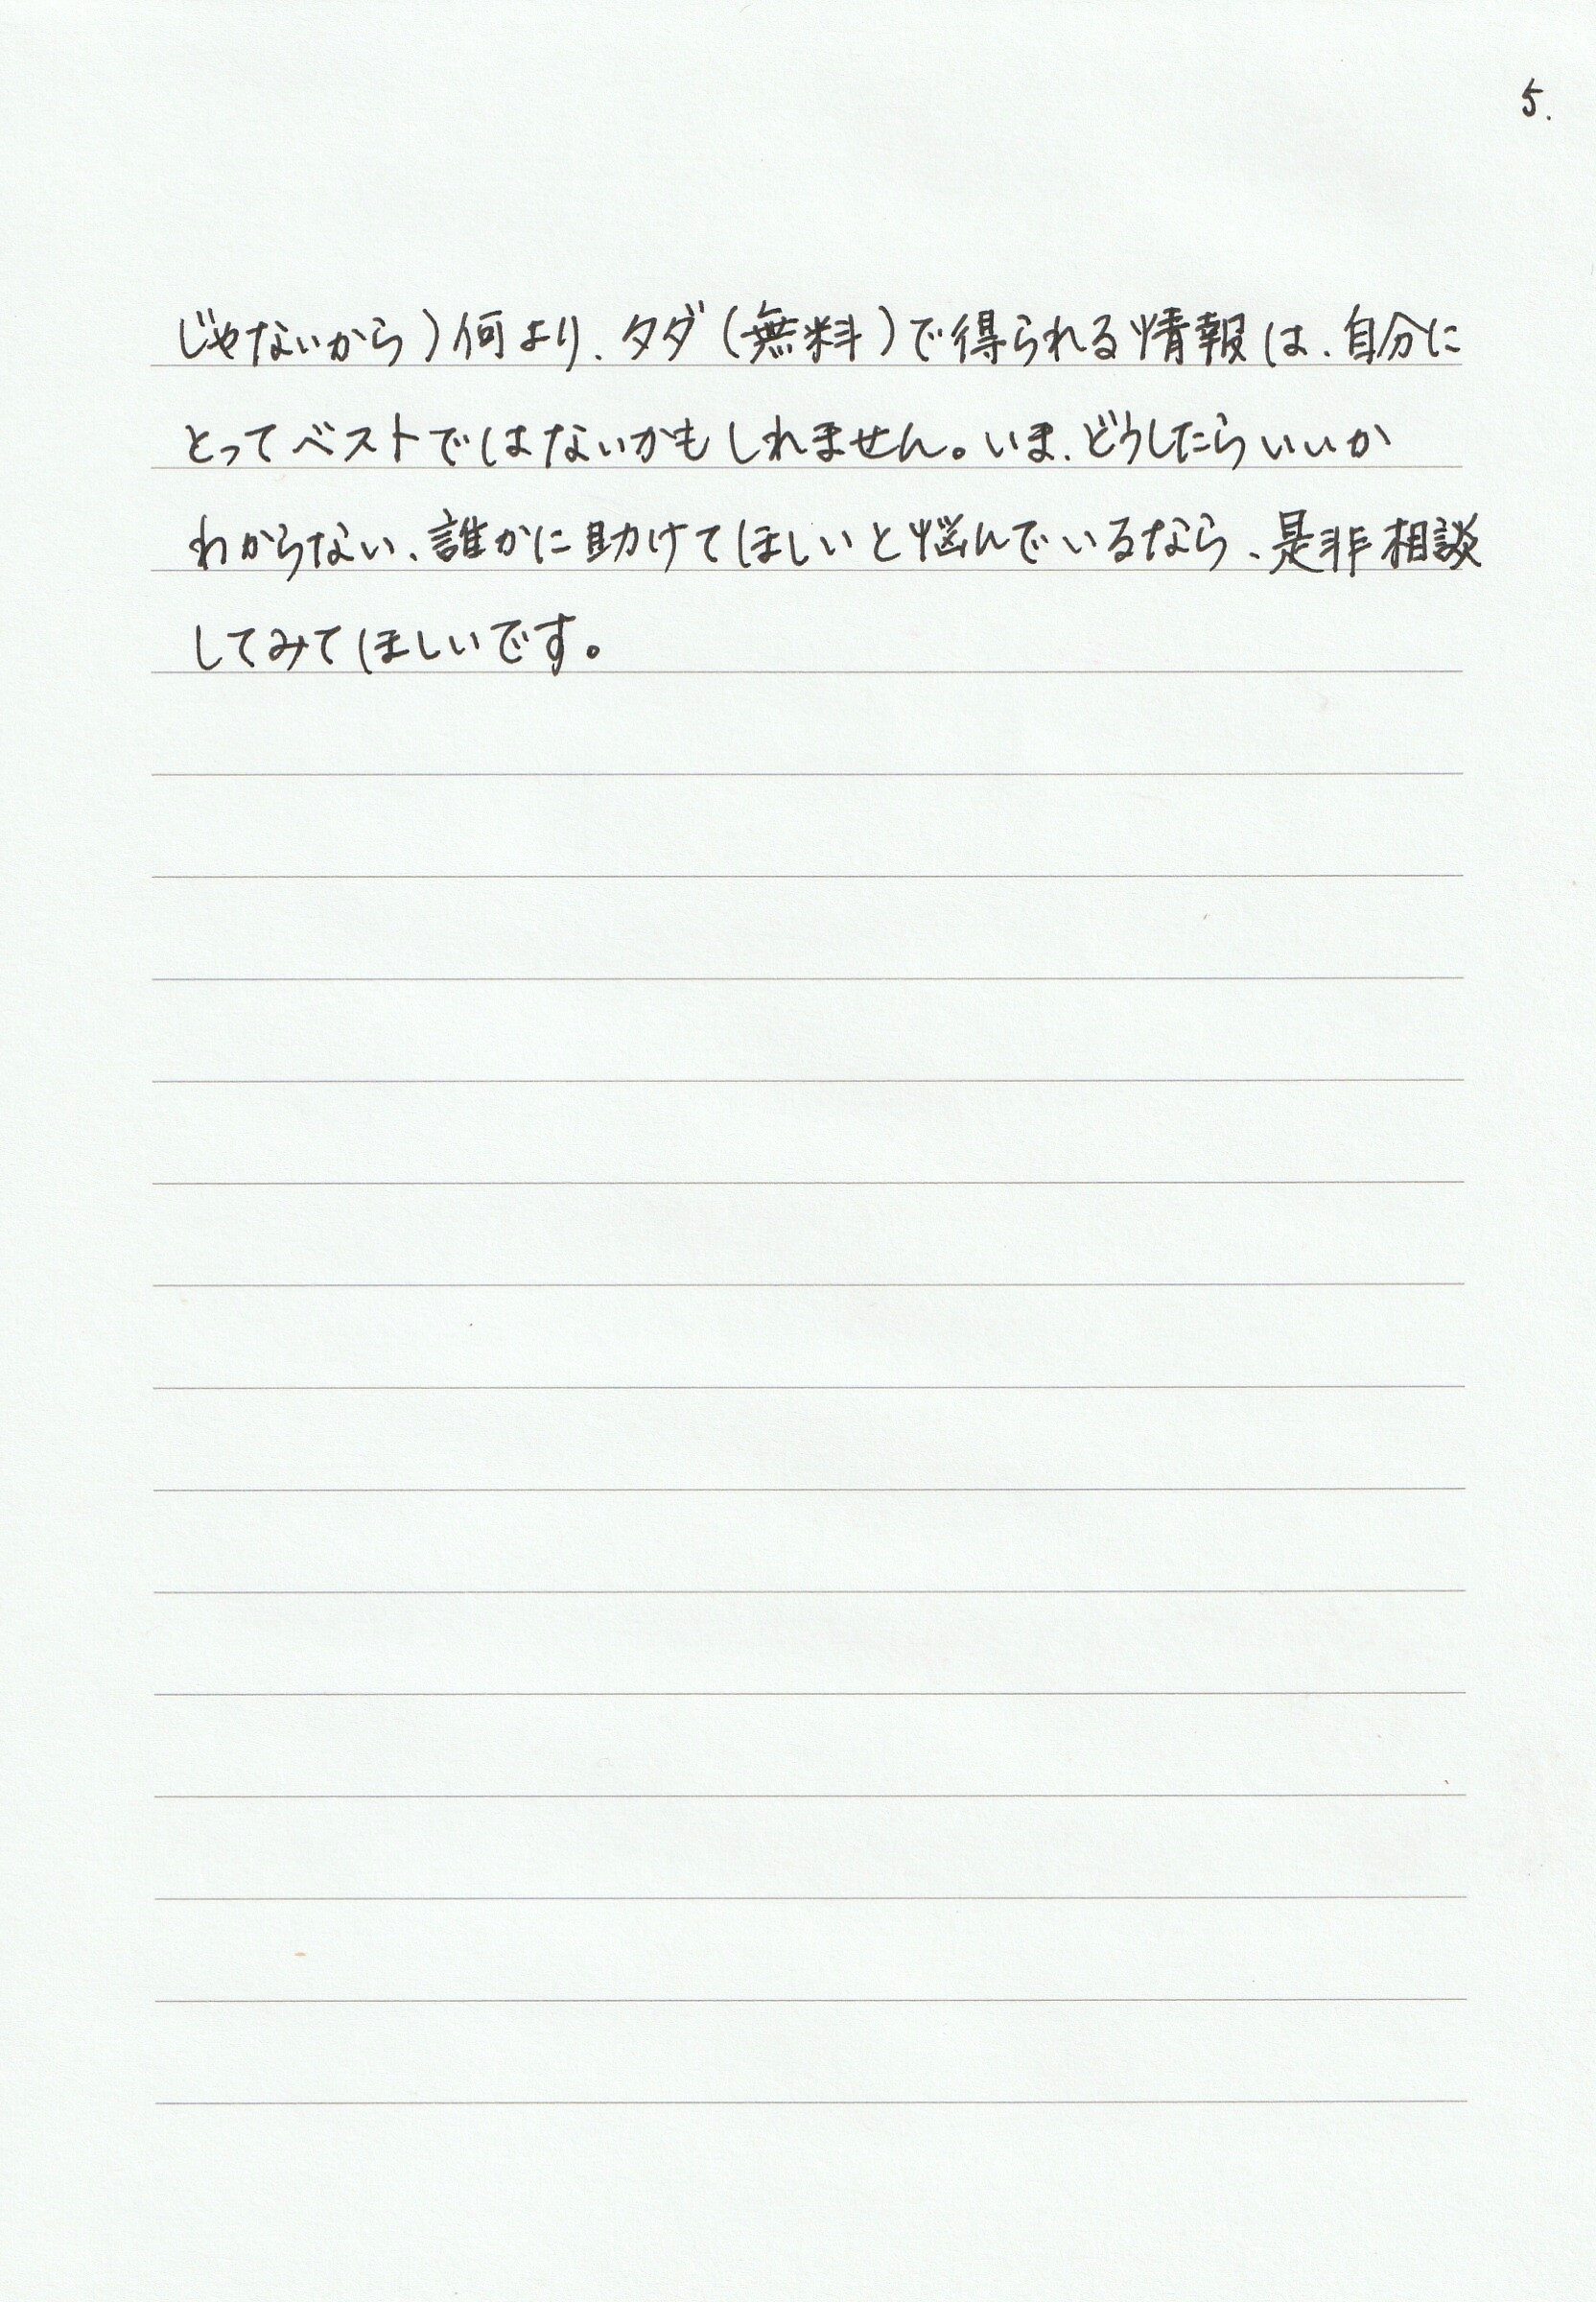 5.
じゃないから)何より、タダ(無料)で得られる情報は、自分に
とってベストではないかもしれません。いま、どうしたらいいか
わからない、誰かに助けてほしいと悩んでいるなら、是非相談
してみてほしいです。